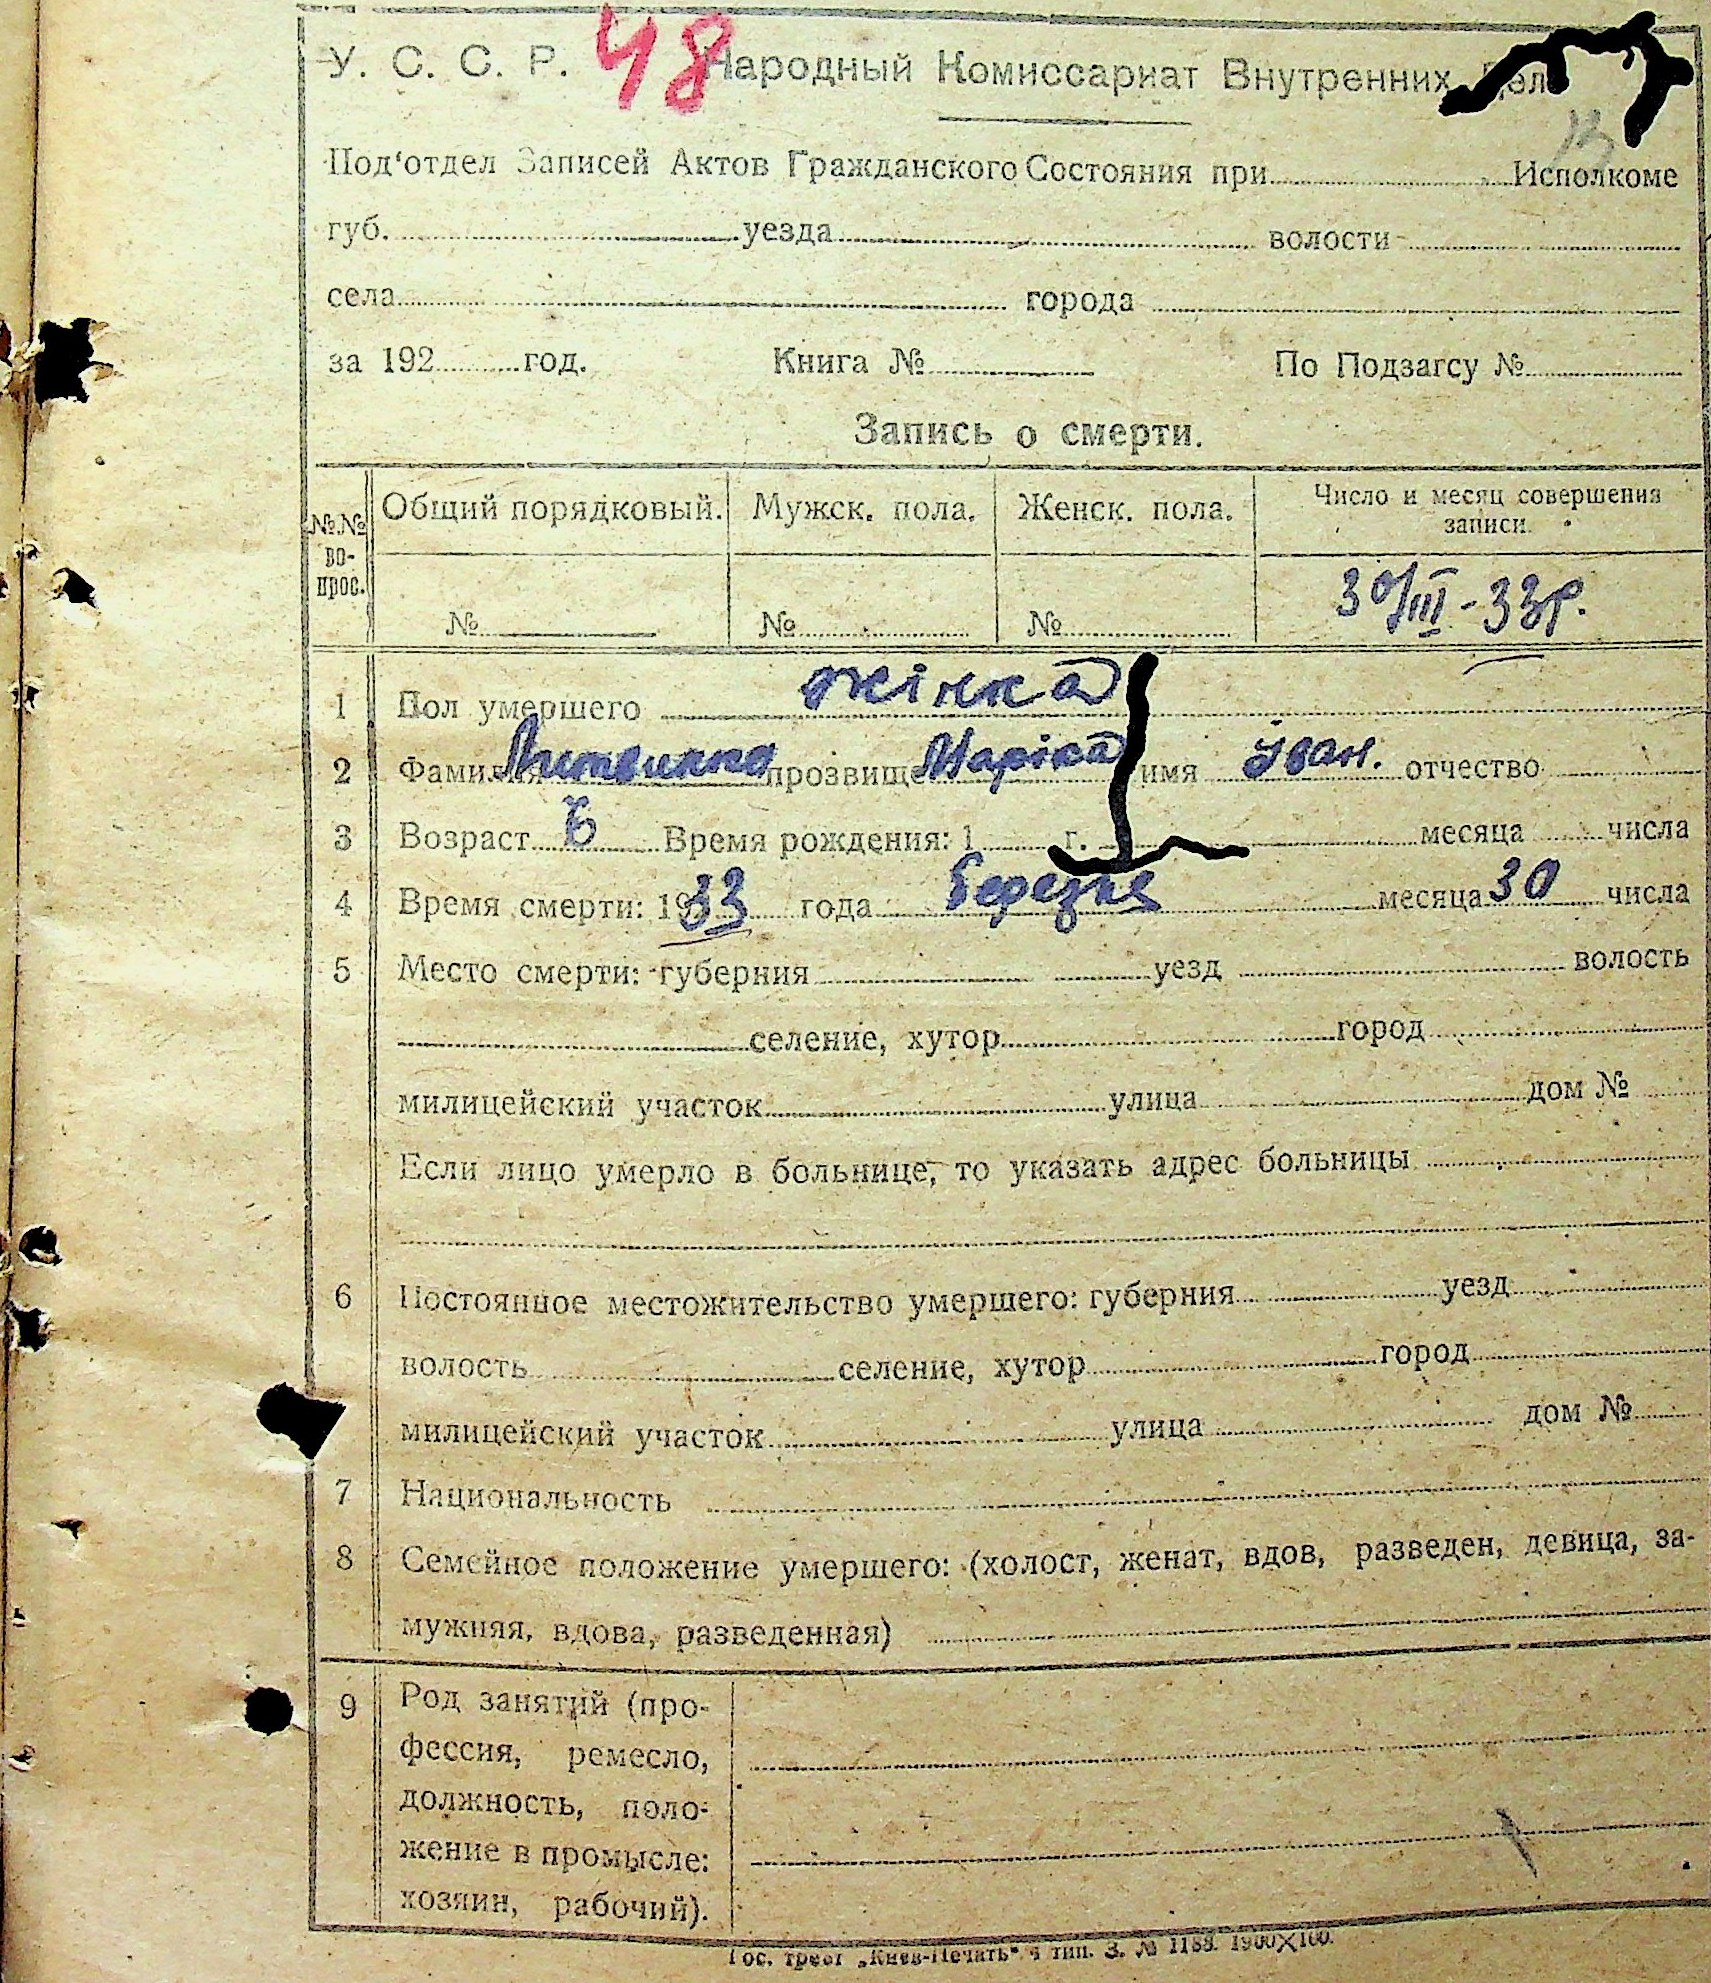 48
У. С. С. Р. Народный Комиссариат Внутренних Дел
13
Под‘отдел Записей Актов Гражданского Состояния при Исполкоме
губ. уезда волости
села города
за 192 год. Книга № По Подзагсу №
Запись о смерти.
№№ во-прос. Общий порядковый. Мужск. пола. Женск. пола. Число и месяц совершения записи.
№ № № 30/III - 33 р.
1 Пол умершего жінка
2 Фамилия Литвинко прозвище Марійка имя Іван. отчество
3 Возраст 6 Время рождения: 1 г. месяца числа
4 Время смерти: 1933 года березня месяца 30 числа
5 Место смерти: губерния уезд волость
селение, хутор город
милицейский участок улица дом №
Если лицо умерло в больнице, то указать адрес больницы
6 Постоянное местожительство умершего: губерния уезд
волость селение, хутор город
милицейский участок улица дом №
7 Национальность
8 Семейное положение умершего: (холост, женат, вдов, разведен, девица, за-
мужняя, вдова, разведенная)
9 Род занятий (про-
фессия, ремесло,
должность, поло-
жение в промысле:
хозяин, рабочий).
Гос. трест „Киев-Печать“ 4 тип. З. № 1188. 1900X100.